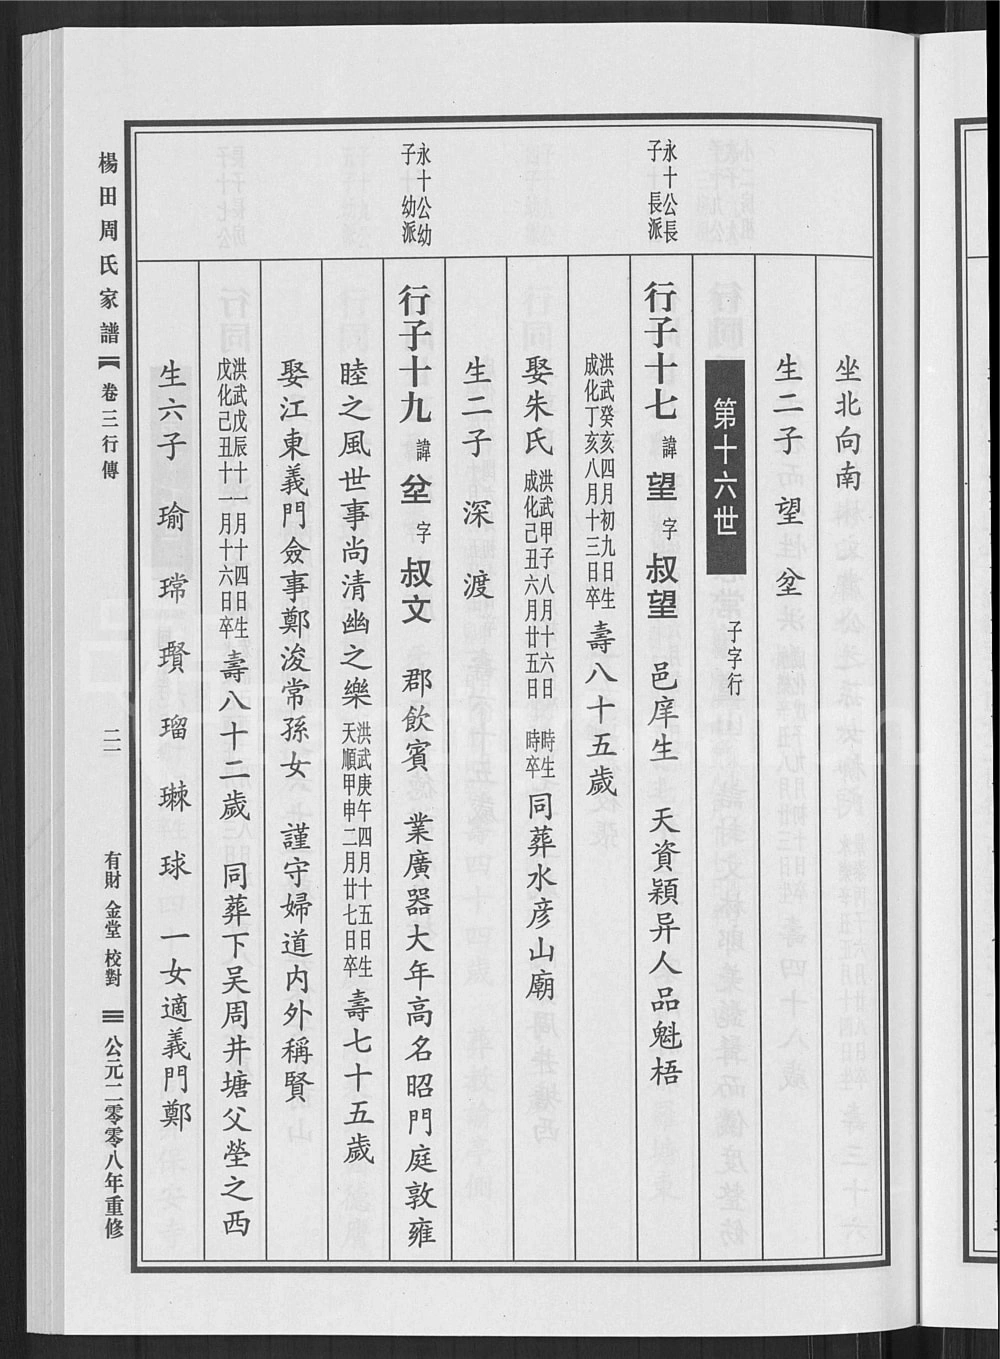 坐北向南
生二子望坌
第十六世 子字行
永十公長子長派
行子十七 諱望 字叔望 邑庠生 天資穎异人品魁梧
洪武癸亥四月初九日生 成化丁亥八月十三日卒 壽八十五歲
娶朱氏 洪武甲子八月十六日時生 成化己丑六月廿五日時卒 同葬水彦山廟
生二子 深 渡
永十公幼子幼派
行子十九 諱坌 字叔文 郡飲賓 業廣器大年高名昭門庭敦雍
睦之風世事尚清幽之樂 洪武庚午四月十五日生 天順甲申二月廿七日卒 壽七十五歲
娶江東義門僉事鄭浚常孫女 謹守婦道内外稱賢
洪武戊辰十一月十四日生 成化己丑十一月十六日卒 壽八十二歲 同葬下吴周井塘父塋之西
生六子 瑜 瑺 瓚 瑠 琳 球 一女適義門鄭
楊田周氏家譜 卷三行傳 二一 有財 金堂 校對 公元二零零八年重修